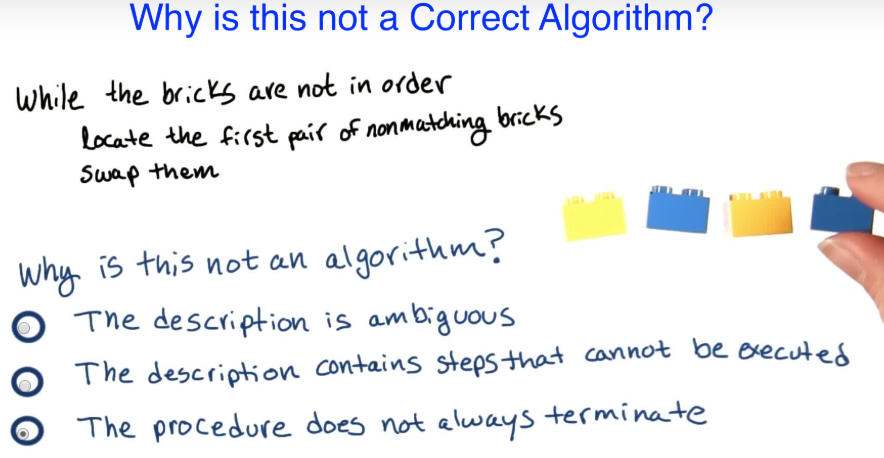 Why is this not a Correct Algorithm?
While the bricks are not in order
locate the first pair of nonmatching bricks
swap them
Why is this not an algorithm?
The description is ambiguous
The description contains steps that cannot be executed
The procedure does not always terminate